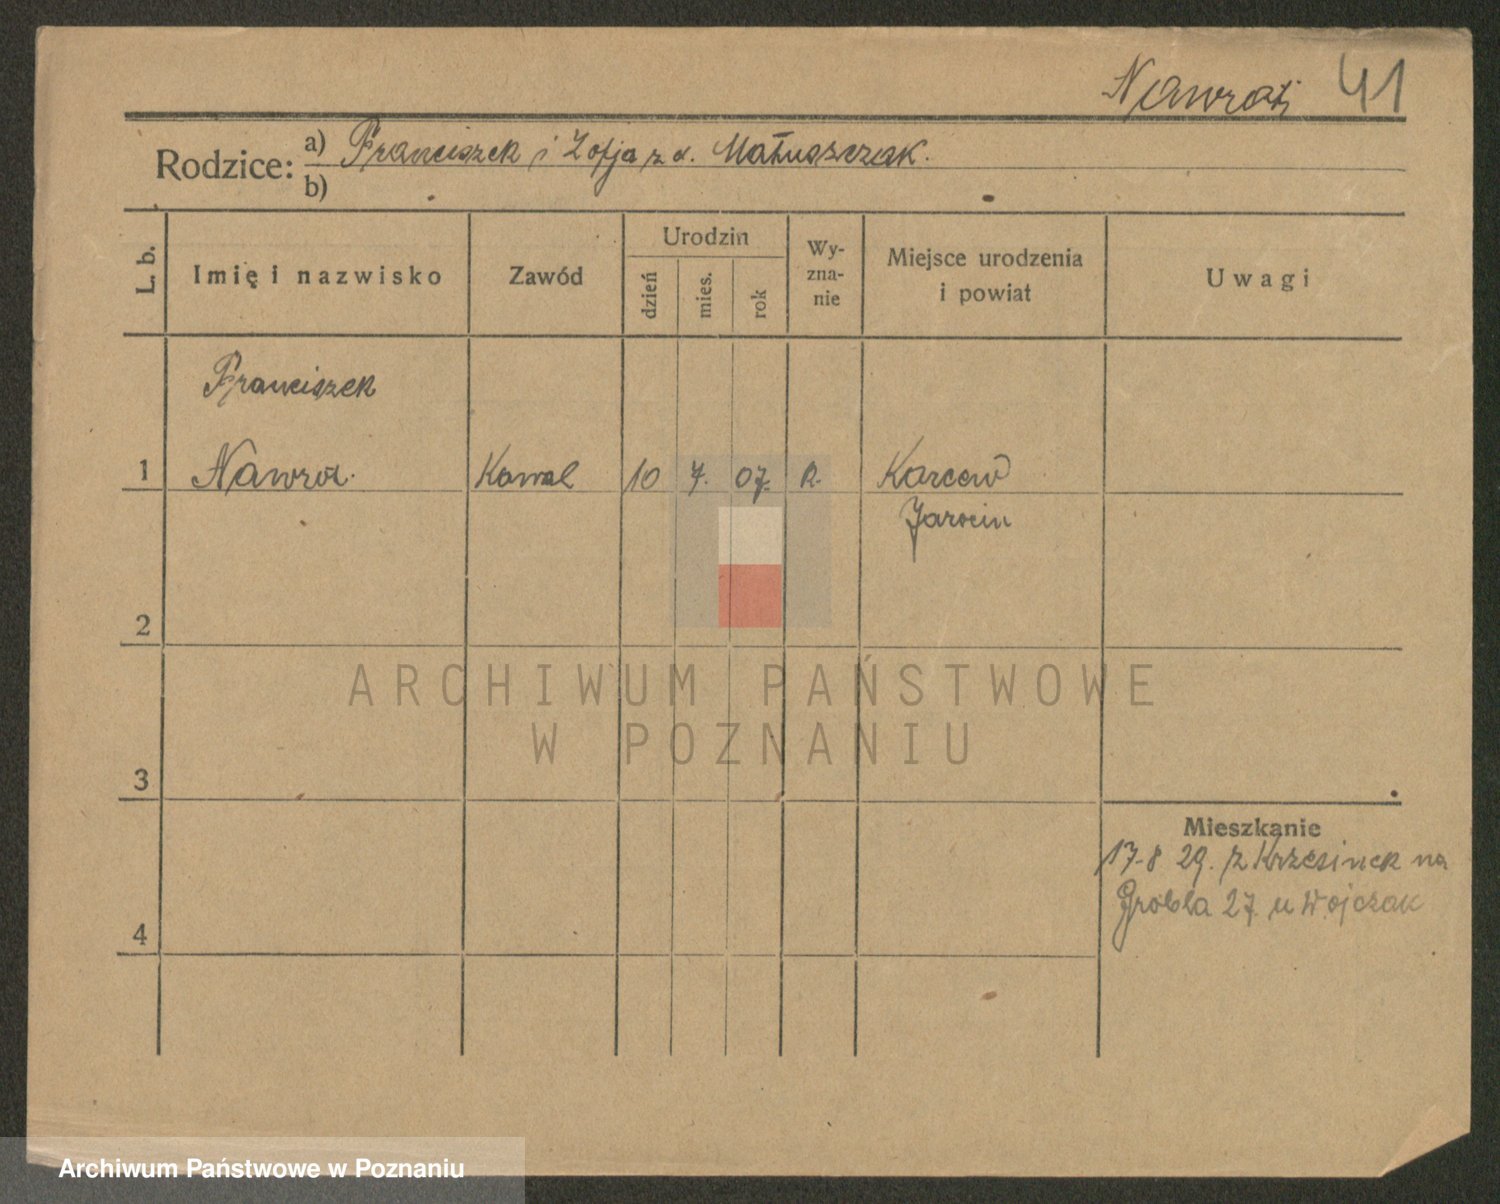 41
Rodzice: a) Franciszek i Zofja z d. Matuszczak.
b)
L. b.
Imię i nazwisko
Zawód
Urodzin
dzień
mies.
rok
Wy-
zna-
nie
Miejsce urodzenia
i powiat
Uwagi
Franciszek
1 Nawrot. Kowal 10 7. 07. R.
Jarocin
2
ARCHIWUM PAŃSTWOWE
W POZNANIU
3
Mieszkanie
17.8 29. z Krzesinek na
Grobla 27. u Wojczak
4
Archiwum Państwowe w Poznaniu